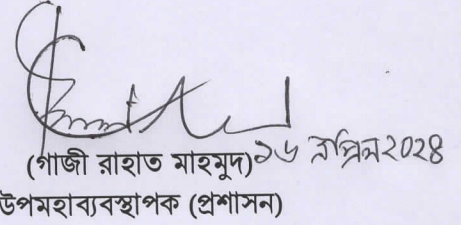 (গাজী রাহাত মাহমুদ) ১৬ এপ্রিল ২০২৪
উপমহাব্যবস্থাপক (প্রশাসন)